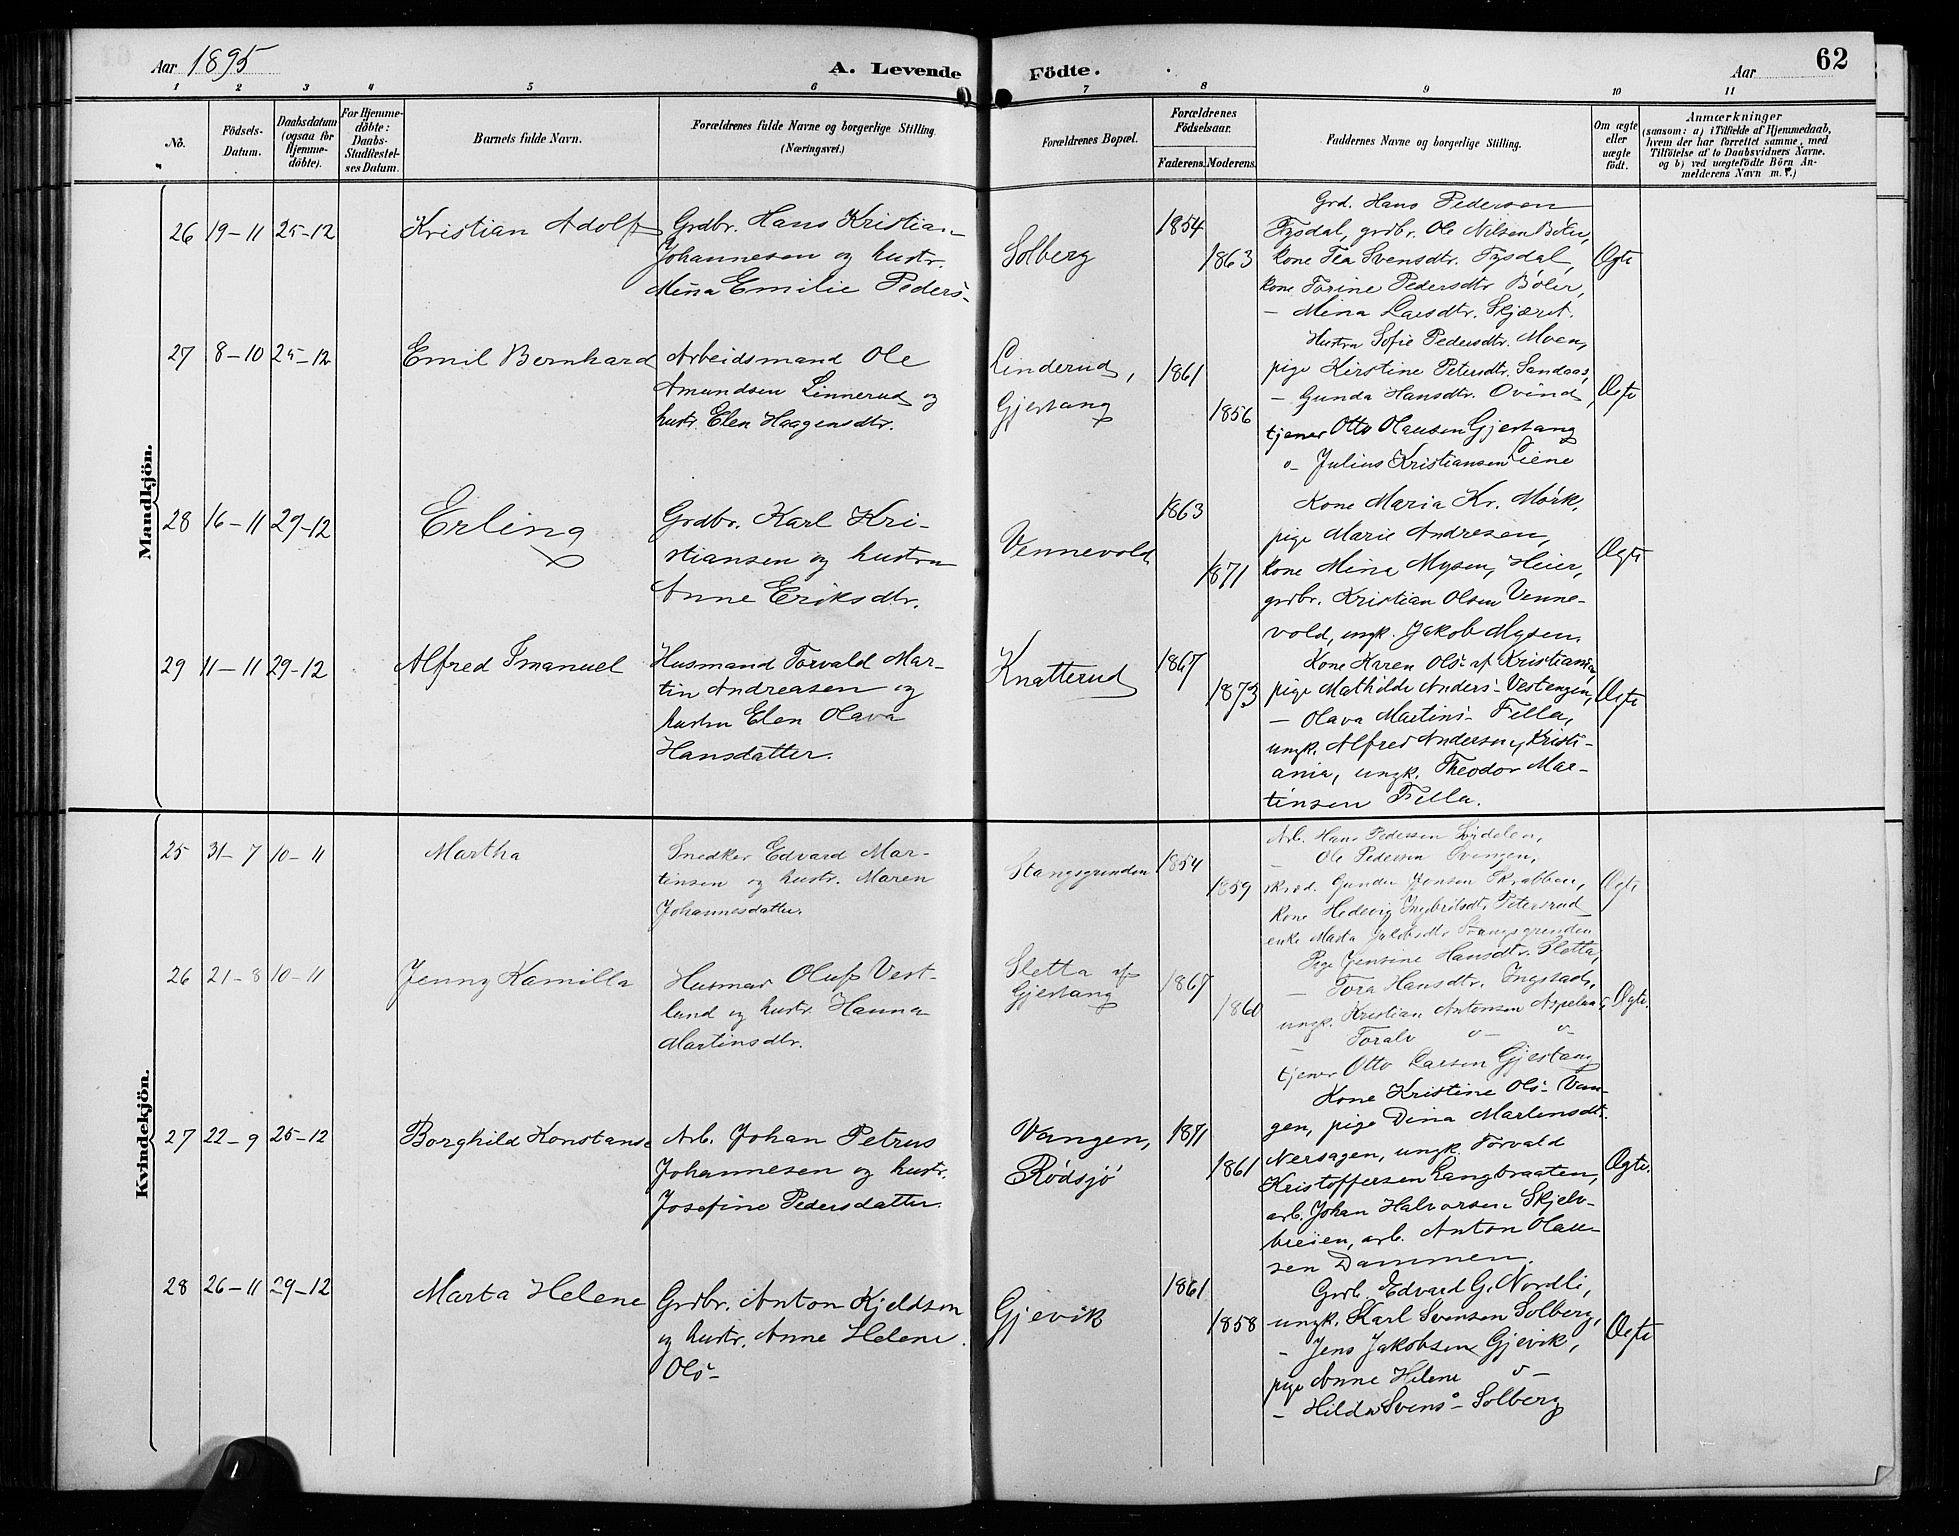 Aar 1895
A. Levende Födte.
Aar
62
1 2 3 4 5 6 7 8 9 10 11
No.
Födsels-
Datum.
Daabsdatum
(ogsaa for
Hjemme-
döbte).
For Hjemme-
döbte:
Daabs-
Stadfæstel-
ses Datum.
Barnets fulde Navn.
Forældrenes fulde Navne og borgerlige Stilling.
(Næringsvei.)
Forældrenes Bopæl.
Forældrenes
Födselsaar.
Faderens.
Moderens.
Faddernes Navne og borgerlige Stilling.
Om ægte
eller
uægte
födt.
Anmærkninger
(saasom: a) i Tilfælde af Hjemmedaab,
hvem der har forrettet samme, med
Tilföielse af to Daabsvidners Navne.
og b) ved uægtefödte Börn An-
melderens Navn m. v.)
Mandkjön.
26 19-11 25-12
Kristian Adolf
Grdbr. Hans Kristian
Johannesen og hustr.
Mina Emilie Peders-
Solberg
1854
1863
Grd. Hans Pedersen
Tysdal, grdbr. Ole Nilsen Böler,
kone Tea Svensdtr. Tysdal,
kone Torine Pedersdtr Böler,
- Mina Larsdtr. Skjæret.
Ægte
27 8-10 25-12
Emil Bernhard
Arbeidsmand Ole
Amundsen Linnerud og
hustr. Elen Haagensdtr.
Linderud,
Gjersang
1861
1856
Hustru Sofie Pedersdtr. Moen,
pige Kirstine Petersdtr. Sandaas,
- Gunda Hansdtr. Ovind,
tjener Otto Olausen Gjersang
o- Julius Kristiansen Liene
Ægte
28 16-11 29-12
Erling
Grdbr. Karl Kri-
stiansen og hustru
Anne Eriksdtr.
Vennevold
1863
1871
Kone Maria Kr. Mörk,
pige Marie Andresen,
kone Mina Mysen, Heier,
grdbr. Kristian Olsen Venne-
vold, ungk. Jakob Mysen.
Ægte
29 11-11 29-12
Alfred Imanuel
Husmand Torvald Mar-
tin Andreasen og
hustru Elen Olava
Hansdatter.
Knatterud
1867
1873
Kone Karen Ols- af Kristiania,
pige Mathilde Anders- Vestengen,
- Olava Martins- Fella,
ungk. Alfred Andersen, Kristi-
ania, ungk. Theodor Mar-
tinsen Fella.
Ægte
Kvindekjön.
25 31-7 10-11
Martha
Snedker Edvard Mar-
tinsen og hustr. Maren
Johannesdatter.
Stangsgrunden
1854
1859
Arb. Hans Pedersen
- Ole Pedersen Svingen,
skræd. Gunder Jensen Skrabben,
kone Hedevig Ingebritsdtr. Petersrud
enke Marta Jakobsdtr Stangsgrunden
Ægte
26 21-8 10-11
Jenny Kamilla
Husmand Oluf Vest-
lund og hustr. Hanna
Martinsdtr.
Sletta af
Gjersang
1867
1860
Pige Jensine Hansdtr. Sletta,
- Tora Hansdtr. Ingstad,
ungk. Kristian Antonsen
- Toralv o- o-
tjener Otto Larsen Gjersang
Ægte.
27 22-9 25-12
Borghild Konstanse
Arb. Johan Petrus
Johannesen og hustr.
Josefine Pedersdatter.
Vangen,
Rödsjö
1871
1861
Kone Kristine Ols- Van-
gen, pige Dina Martinsdtr.
Nersagen, ungk. Torvald
Kristoffersen Langbraaten,
arb. Johan Halvorsen Skjelv-
breien, arb. Anton Olau-
sen Dammen.
Ægte.
28 26-11 29-12
Marta Helene
Grdbr. Anton Kjeldsen
og hustr. Anne Helene
Ols-
Gjevik
1861
1858
Grb. Edvard G. Nordli,
ungk. Karl Svensen Solberg,
- Jens Jakobsen Gjevik,
pige Anne Helene o-
- Hilda Svens- Solberg
Ægte